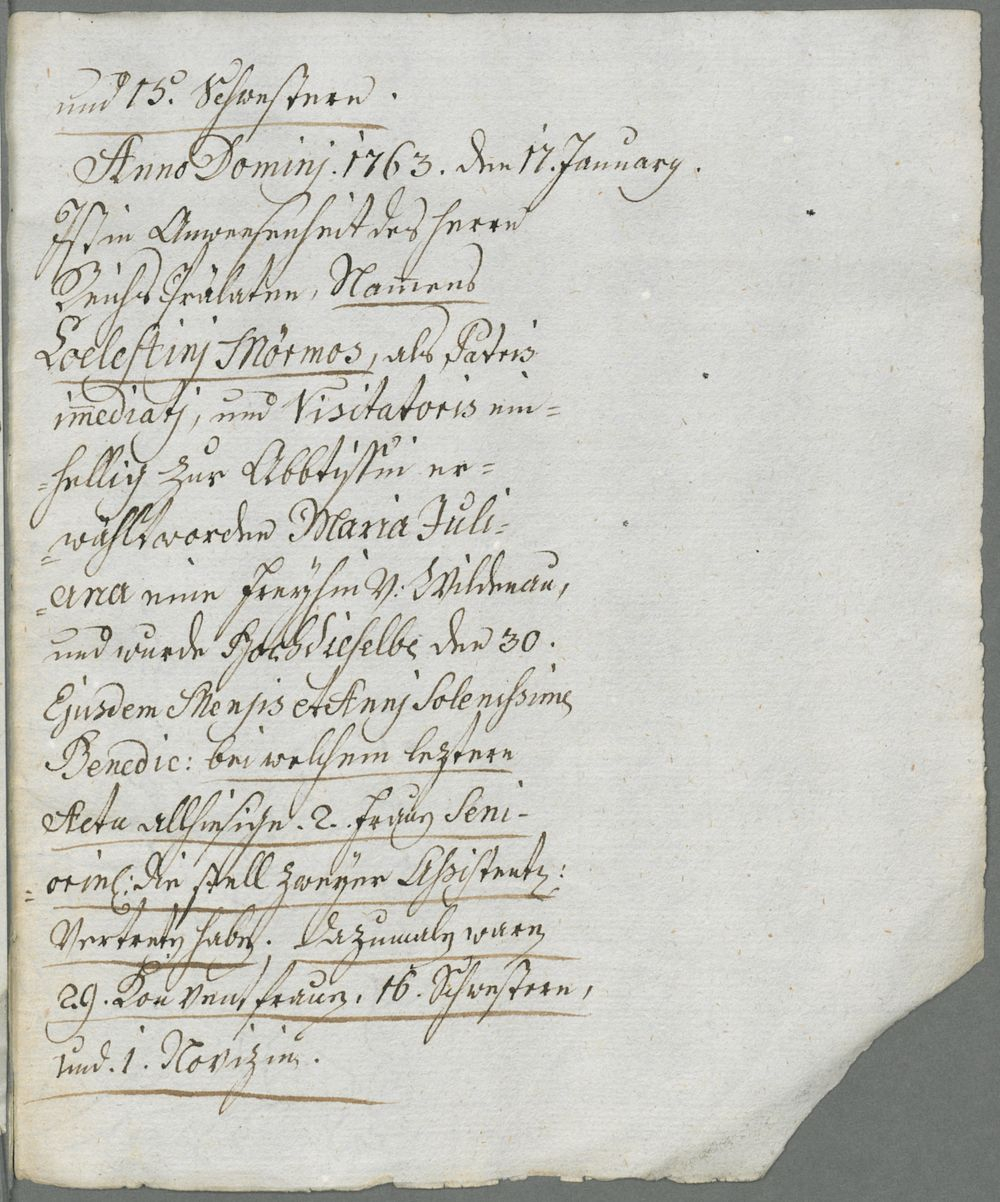 und 15. Schwestern.
Anno Dominj. 1763. den 17. January.
Ist in Anweesenheit des Herrn
Reichs Prälaten, Nam̅ens
Coelestinj Mörmos, als Patris
im̅ediatj, und Visitatoris ein=
=hellig zur Abbtissin er=
=wählt worden Maria Juli=
=ana eine Freyhin V: Wildenau,
und wurde Hochdieselbe den 30.
Ejusdem Mensis et Annj Solenissime
Benedic: bei welchem leztern
Actu allhiesige. 2. Frauen Seni=
=orin: die stell zweyer Assistentin:
Vertretten haben. Dazumalen waren
29. Konventfrauen, 16. Schwestern,
und. 1. Novizin.